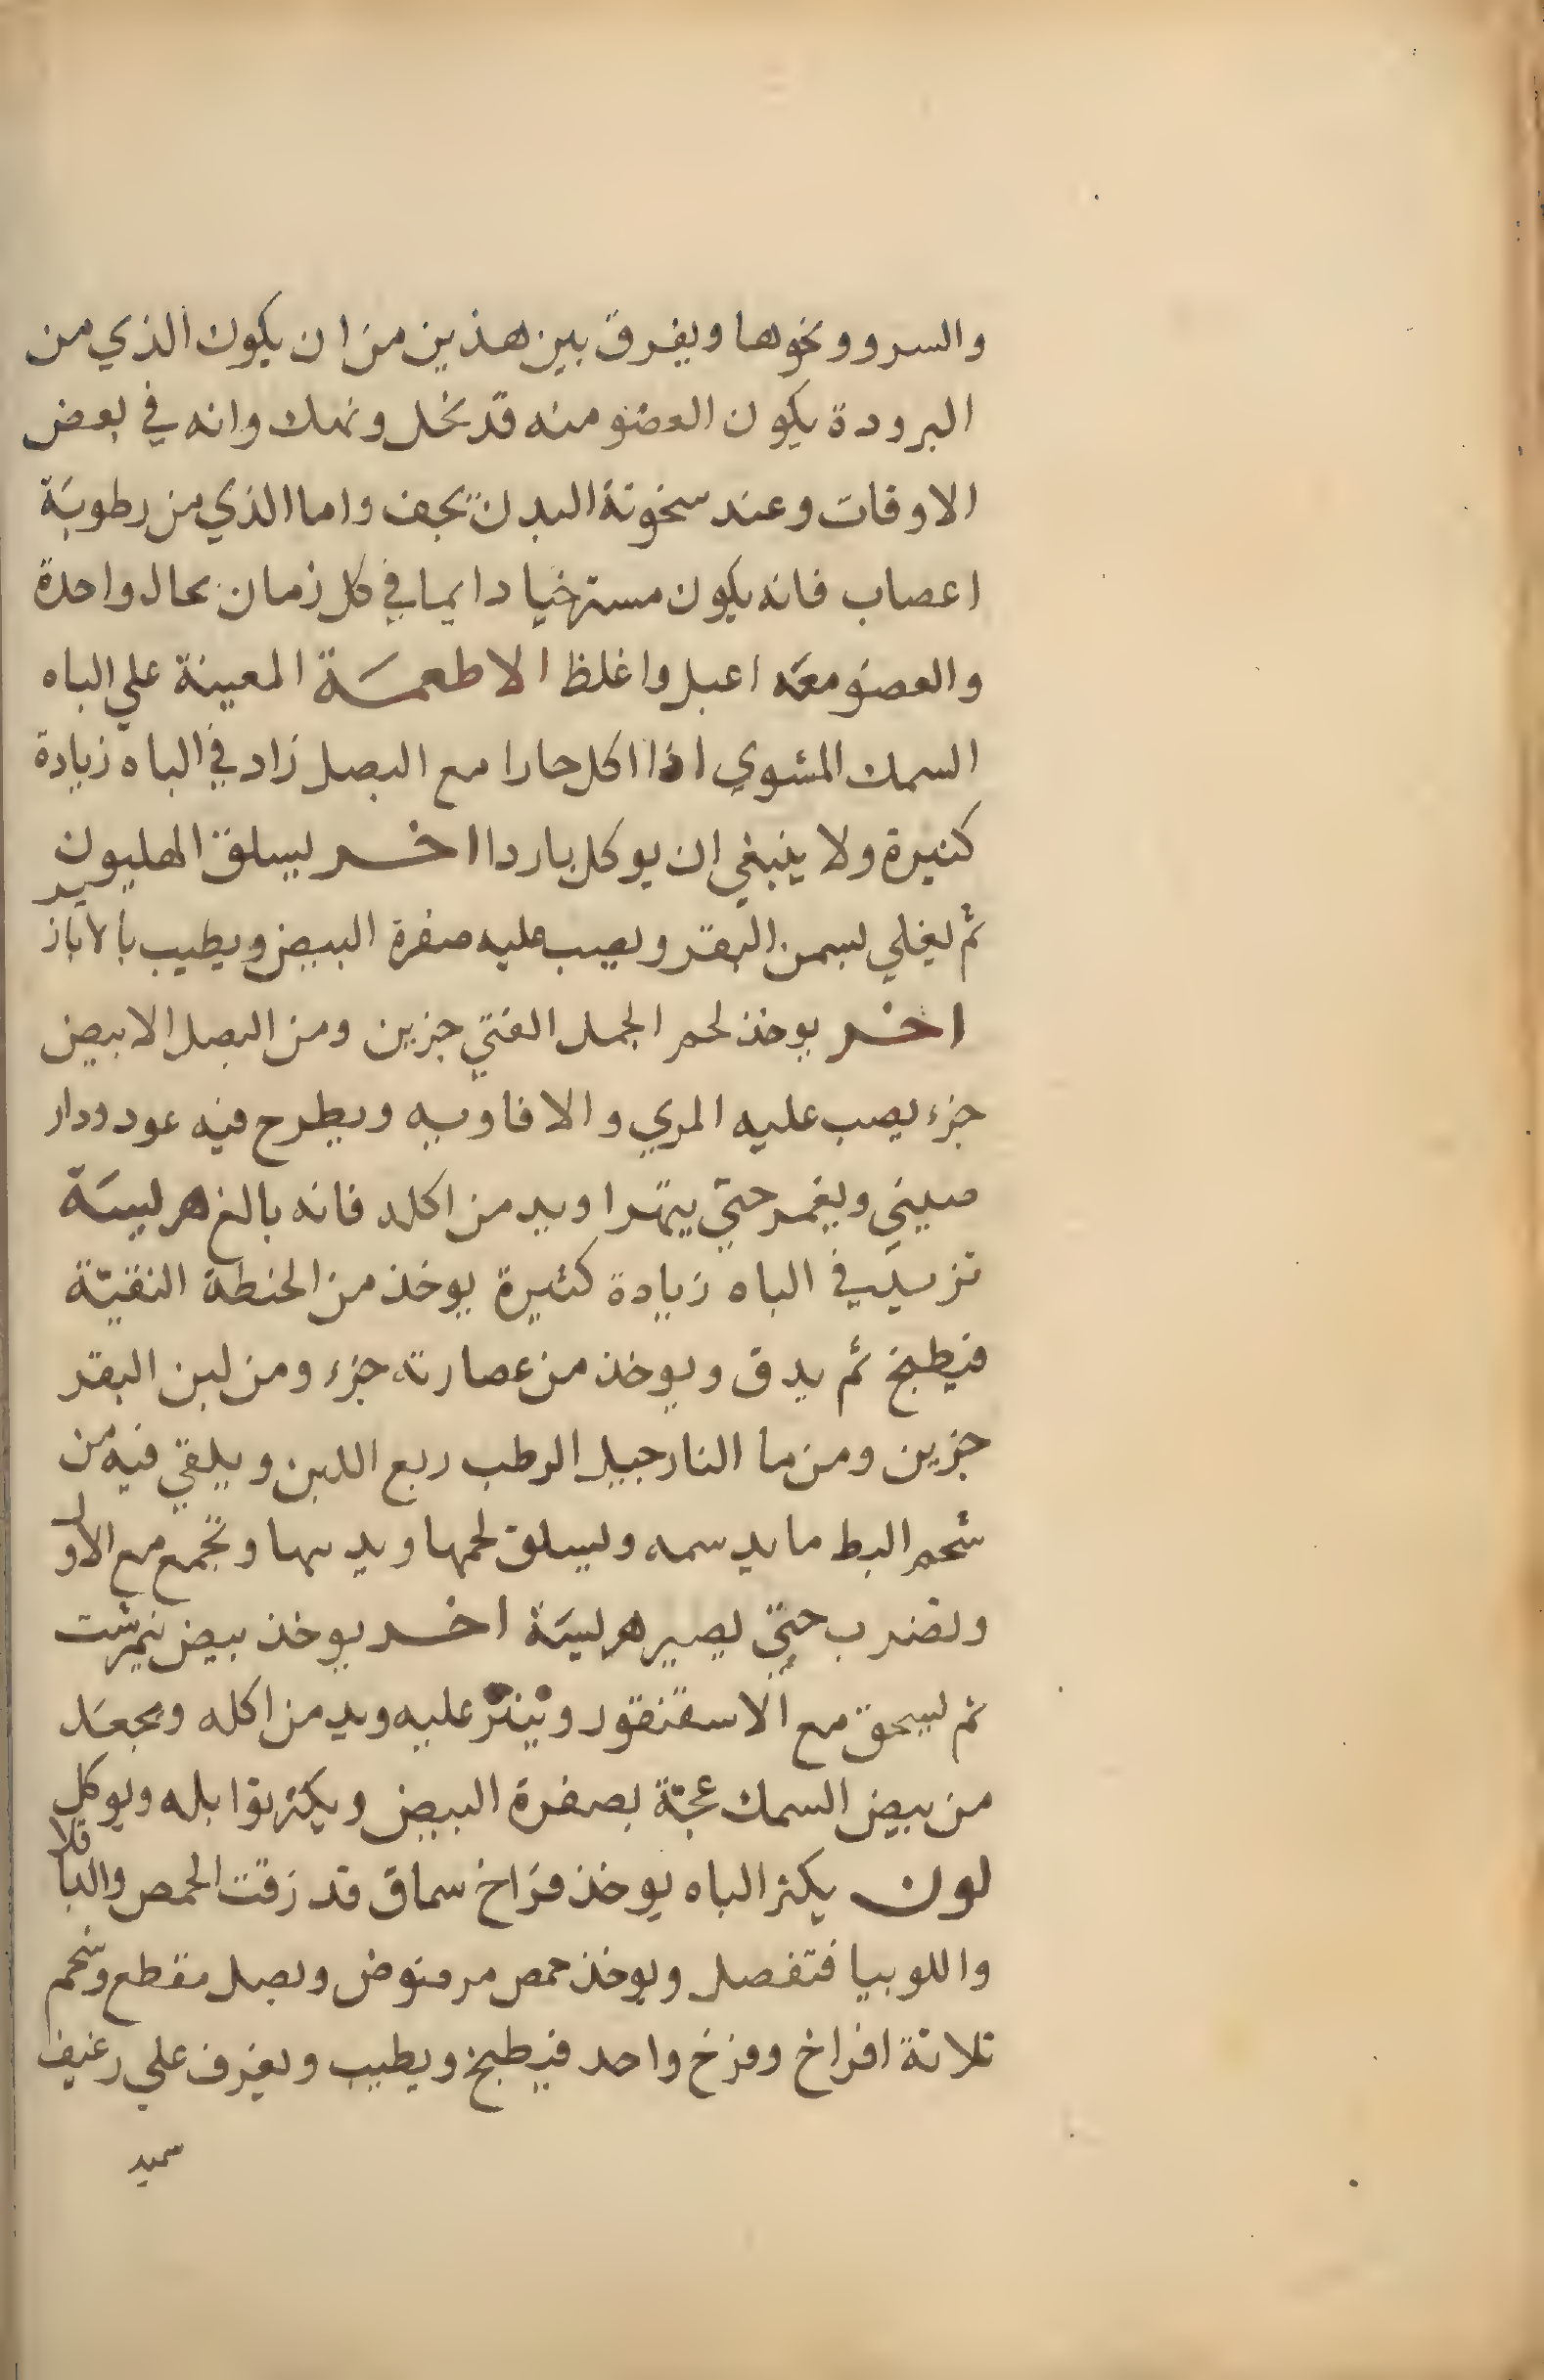 والسرو ونحوها ويفرق بين هذين من ان يكون الذي من
البرودة يكون العضو منه قد نحل ونهك وانه في بعض
الاوقات وعند سخونة البدن يجف واما الذي من رطوبة
اعصاب فانه يكون مسترخيا دايما في كل زمان بحال واحدة
والعضو معه اعبل واغلظ الاطعمة المعينة علي الباه
السمك المشوي اذا اكل حارا مع البصل زاد في الباه زيادة
كثيرة ولا ينبغي ان يوكل باردا اخر يسلق الهليون
ثم يغلي بسمن البقر ويصب عليه صفرة البيض ويطيب بالابازير
اخر يوخذ لحم الجمل الفتي جزين ومن البصل الابيض
جزء يصب عليه المري والافاويه ويطرح فيه عود ودار
صيني ويغمر حتي يتهرا ويدمن اكله فانه بالغ هريسة
تزيد في الباه زيادة كثيرة يوخذ من الحنطة النقية
فيطبخ ثم يدق ويوخذ من عصارته جزء ومن لبن البقر
جزين ومن ما النارجيل الرطب ربع اللبن ويلقي فيه من
شحم البط ما يدسمه ويسلق لحمها ويدبها وتجمع مع الاول
وتضرب حتي يصير هريسة اخر يوخذ بيض نيمرشت
ثم يسحق مع الاسقنقور وينثر عليه ويدمن اكله ويجعل
من بيض السمك عجة بصفرة البيض ويكثر توابله ويوكل
لون يكثر الباه يوخذ فراخ سماق قد زقت الحمص والباقلا
واللوبيا فتفصل ويوخذ حمص مرضوض وبصل مقطع وشحم
ثلاثة افراخ وفرخ واحد فيطبخ ويطيب ويغرف علي رغيف
سميد